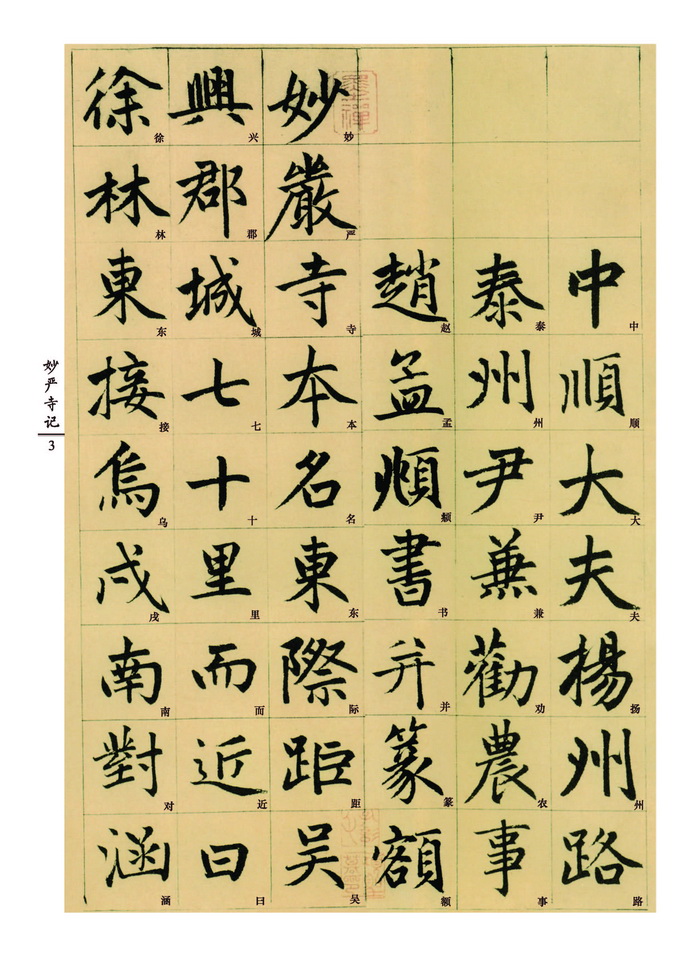 中順大夫楊州路
中顺大夫扬州路
泰州尹兼勸農事
泰州尹兼劝农事
趙孟頫書并篆額
赵孟頫书并篆额
妙嚴寺本名東際距吴
妙严寺本名东际距吴
興郡城七十里而近曰
兴郡城七十里而近曰
徐林東接烏戍南對涵
徐林东接乌戍南对涵
妙严寺记
3